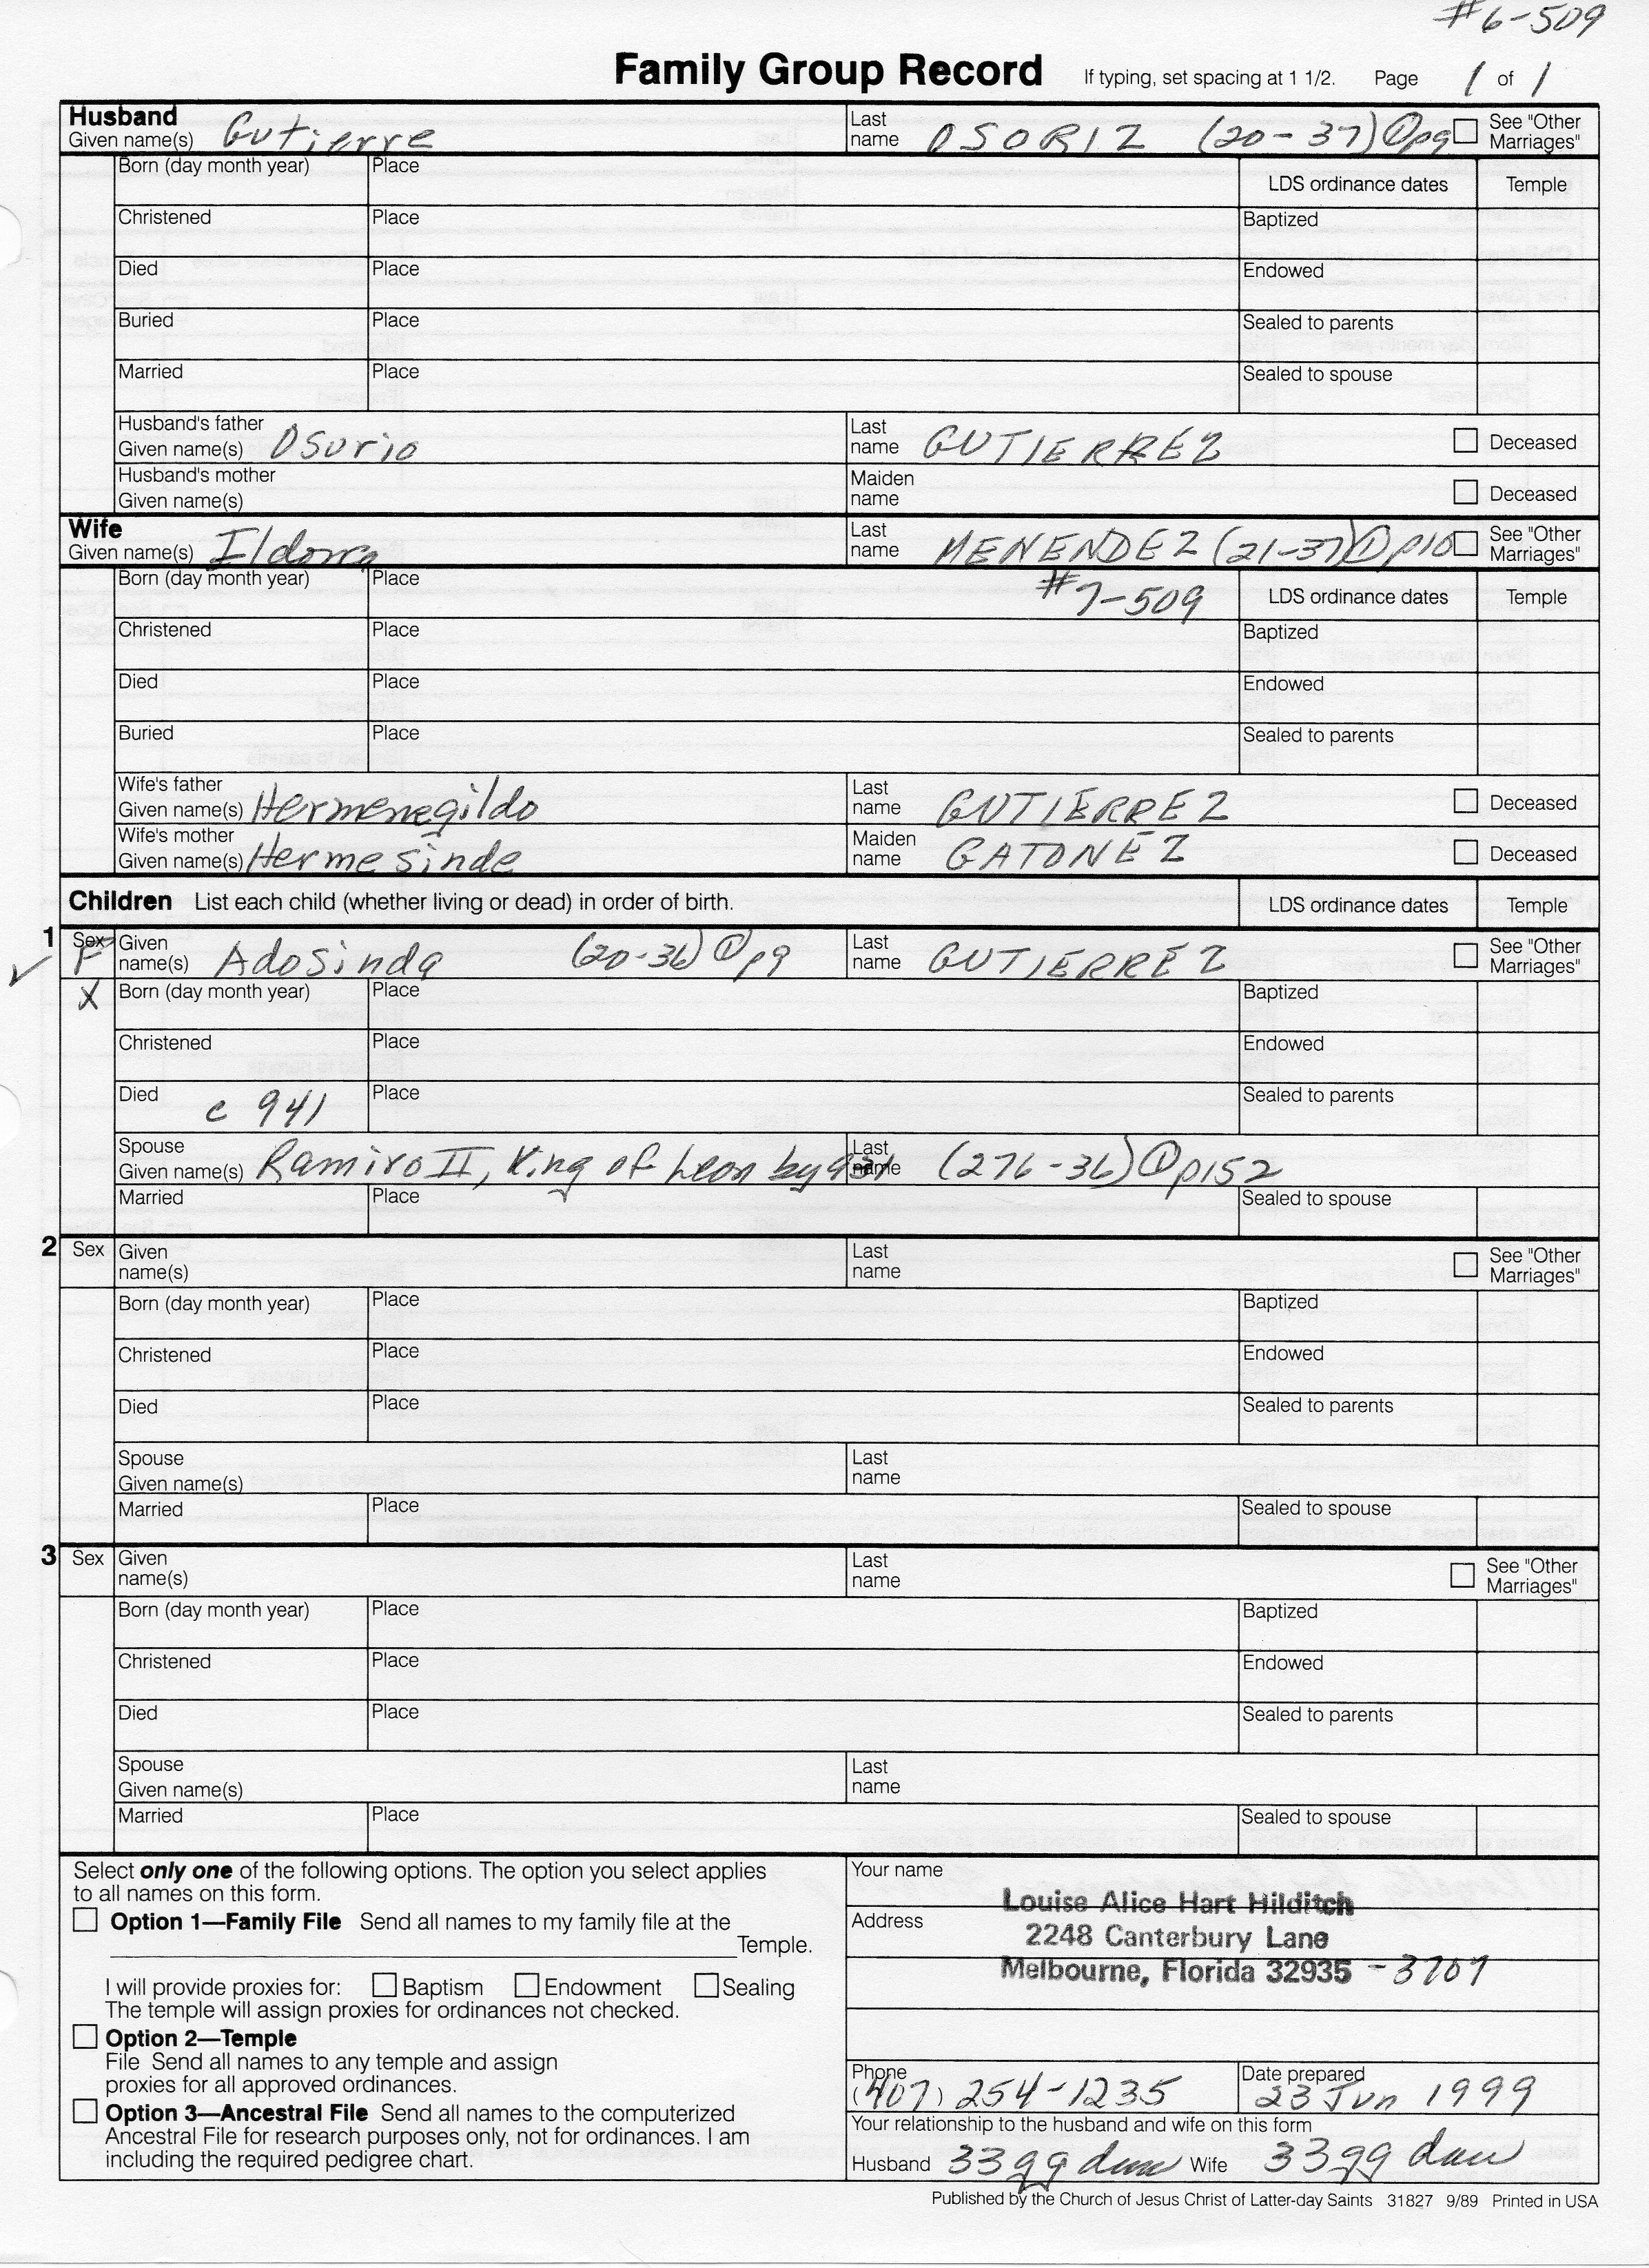 #6-509
Family Group Record If typing, set spacing at 1 1/2. Page 1 of 1
Husband
Given name(s) Gutierre Last name OSORIZ (20-37)①p9 See "Other Marriages"
Born (day month year) Place LDS ordinance dates Temple
Christened Place Baptized
Died Place Endowed
Buried Place Sealed to parents
Married Place Sealed to spouse
Husband's father
Given name(s) Osorio Last name GUTIERREZ Deceased
Husband's mother
Given name(s) Maiden name Deceased
Wife
Given name(s) Ildonza Last name MENENDEZ (21-37)①p10 See "Other Marriages"
Born (day month year) Place #7-509 LDS ordinance dates Temple
Christened Place Baptized
Died Place Endowed
Buried Place Sealed to parents
Wife's father
Given name(s) Hermenegildo Last name GUTIERREZ Deceased
Wife's mother
Given name(s) Hermesinde Maiden name GATONEZ Deceased
Children List each child (whether living or dead) in order of birth. LDS ordinance dates Temple
1 Sex F Given name(s) Adosinda (20-36)①p9 Last name GUTIERREZ See "Other Marriages"
X Born (day month year) Place Baptized
Christened Place Endowed
Died c 941 Place Sealed to parents
Spouse
Given name(s) Ramiro II, King of Leon by 931 Last name (276-36)①p152
Married Place Sealed to spouse
2 Sex Given name(s) Last name See "Other Marriages"
Born (day month year) Place Baptized
Christened Place Endowed
Died Place Sealed to parents
Spouse
Given name(s) Last name
Married Place Sealed to spouse
3 Sex Given name(s) Last name See "Other Marriages"
Born (day month year) Place Baptized
Christened Place Endowed
Died Place Sealed to parents
Spouse
Given name(s) Last name
Married Place Sealed to spouse
Select only one of the following options. The option you select applies
to all names on this form.
Option 1—Family File Send all names to my family file at the
Temple.
I will provide proxies for: Baptism Endowment Sealing
The temple will assign proxies for ordinances not checked.
Option 2—Temple
File Send all names to any temple and assign
proxies for all approved ordinances.
Option 3—Ancestral File Send all names to the computerized
Ancestral File for research purposes only, not for ordinances. I am
including the required pedigree chart.
Your name
Louise Alice Hart Hilditch
Address
2248 Canterbury Lane
Melbourne, Florida 32935 -3707
Phone
(407) 254-1235
Date prepared
23 Jun 1999
Your relationship to the husband and wife on this form
Husband 33gg dau Wife 33gg dau
Published by the Church of Jesus Christ of Latter-day Saints 31827 9/89 Printed in USA